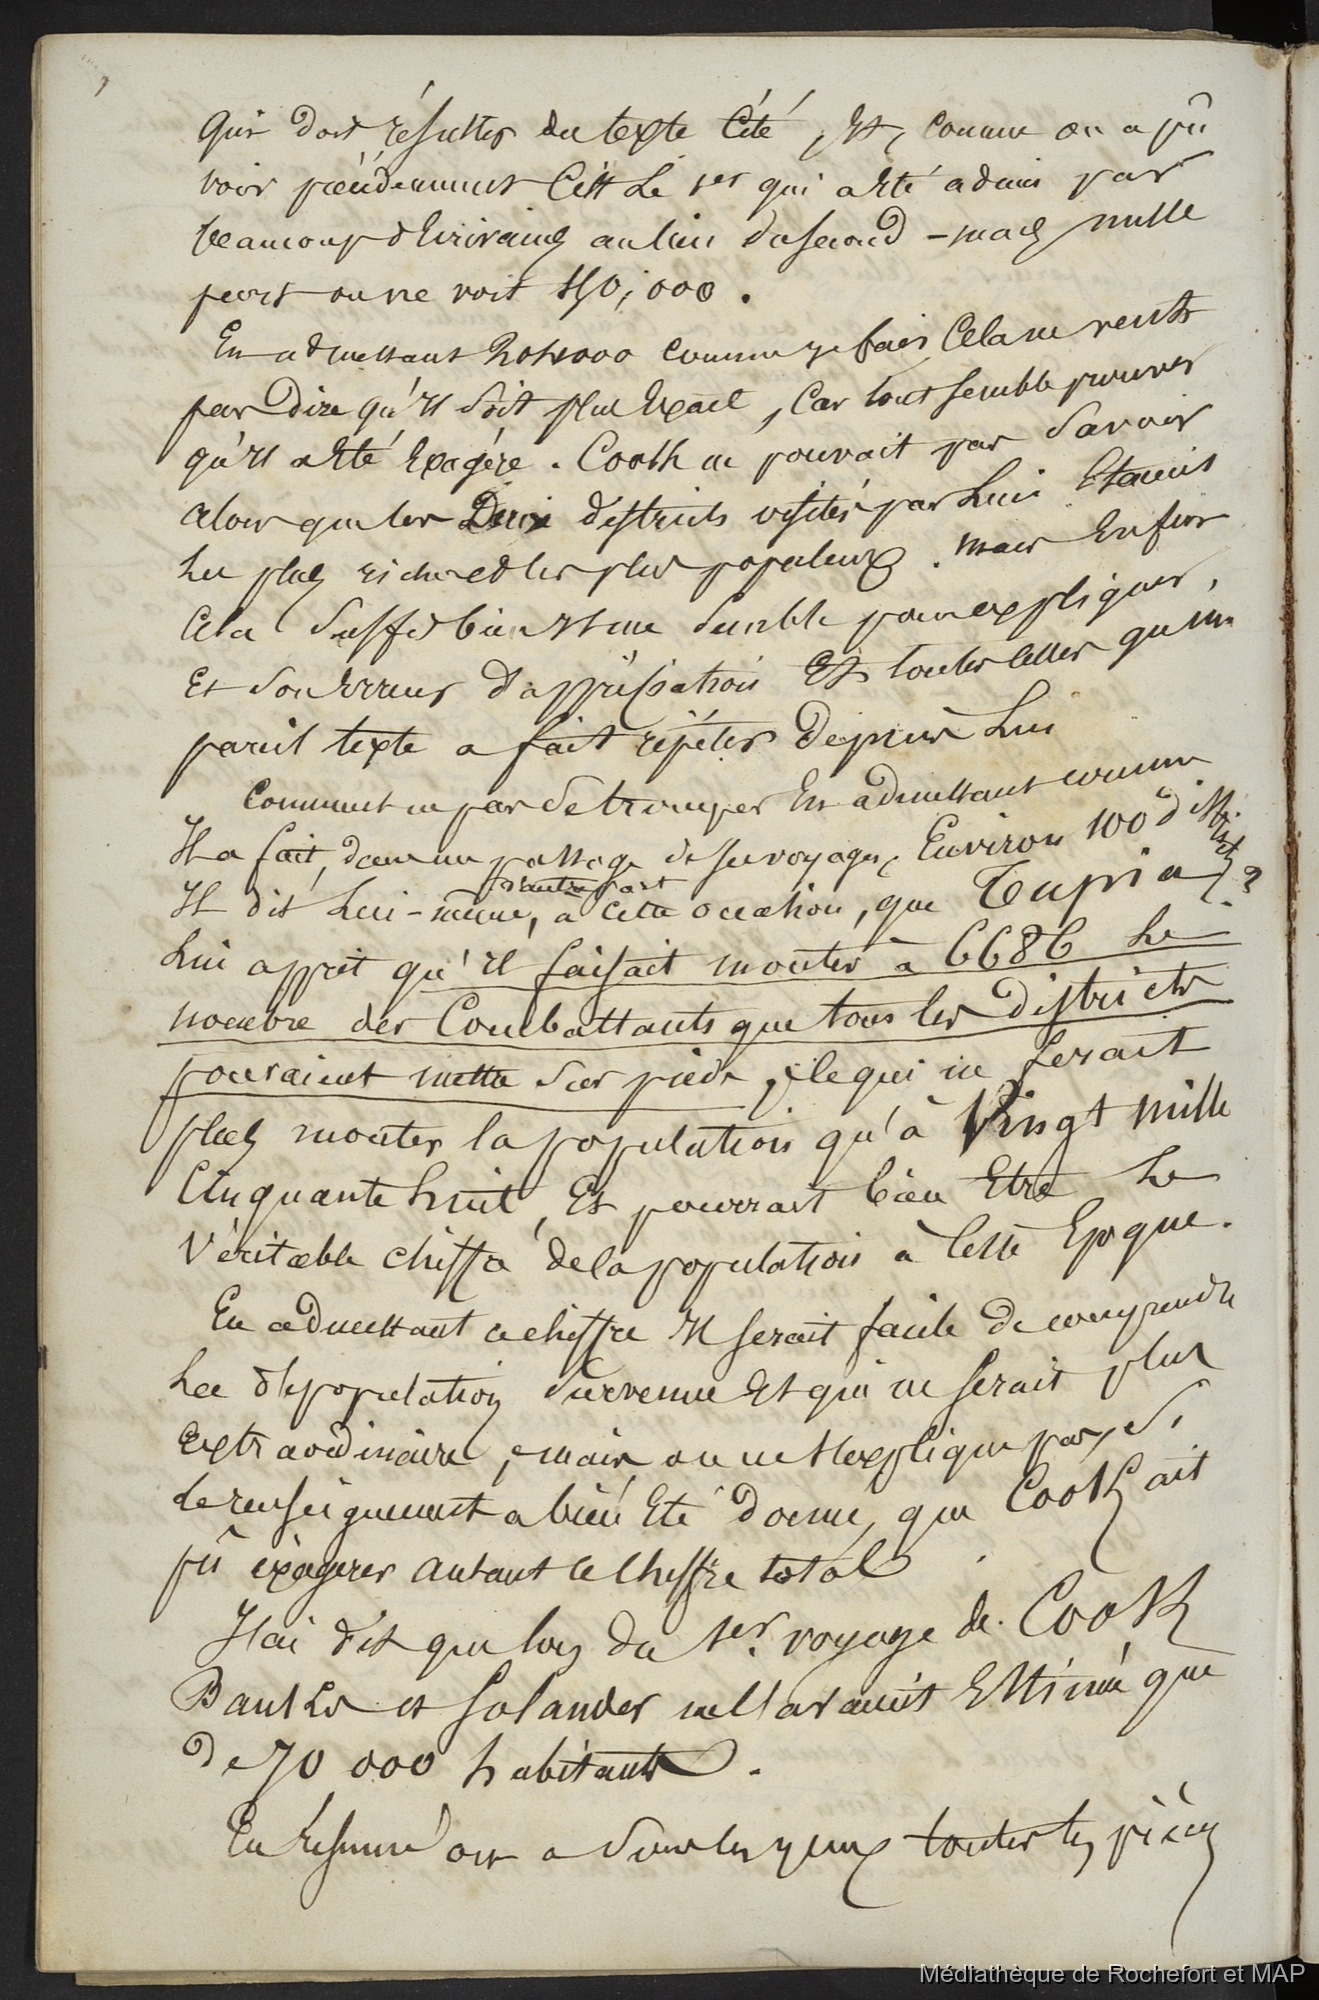 qui doit résulter du texte Cité, Et, comme on a pû
voir précédemment C'est Le 1er qui a Eté admis par
beaucoup d'Ecrivains au lieu du second - mais nulle
part on ne voit 150,000.
En admettant 204000 comme je fais, Cela ne veut
pas Dire qu'Il soit plus Exact, Car tout semble prouver
qu'Il a Eté Exagéré. Cook ne pouvait pas Savoir
alors que les Deux districts visités par Lui Etaient
Les plus riches et les plus populeux. mais Enfin
Cela suffit bien Il me semble pour expliquer,
Et son Erreur d'appréciation Et toutes celles qu'un
pareil texte a fait répéter Depuis Lui
Comment ne pas se tromper En admettant comme
Il a fait, dans un passage de ses voyages, Environ 100 districts?
d'autre part
Il dit Lui-même, à Cette occasion, que Tupia
Lui apprit qu'Il faisait monter à 6686 Le
nombre des Combattants que tous les districts
pouraient mettre sur pieds, Ce qui ne ferait
plus monter la population qu'à Vingt mille
Cinquante huit, Et pourrait bien Etre Le
Véritable chiffre de la population à Cette Epoque.
En admettant ce chiffre Il serait facile de comprendre
La dépopulation survenue Et qui ne serait plus
Extraordinaire, mais on ne s'explique pas, si
le renseignement a bien Eté donné, que Cook ait
pû exagerer autant le Chiffre total.
J'ai dit que lors du 1er voyage de Cook
Banks et Solander ne l'avaient Estimé que
de 70 000 habitants.
En Résumé on a sous les yeux toutes les pièces
Médiathèque de Rochefort et MAP